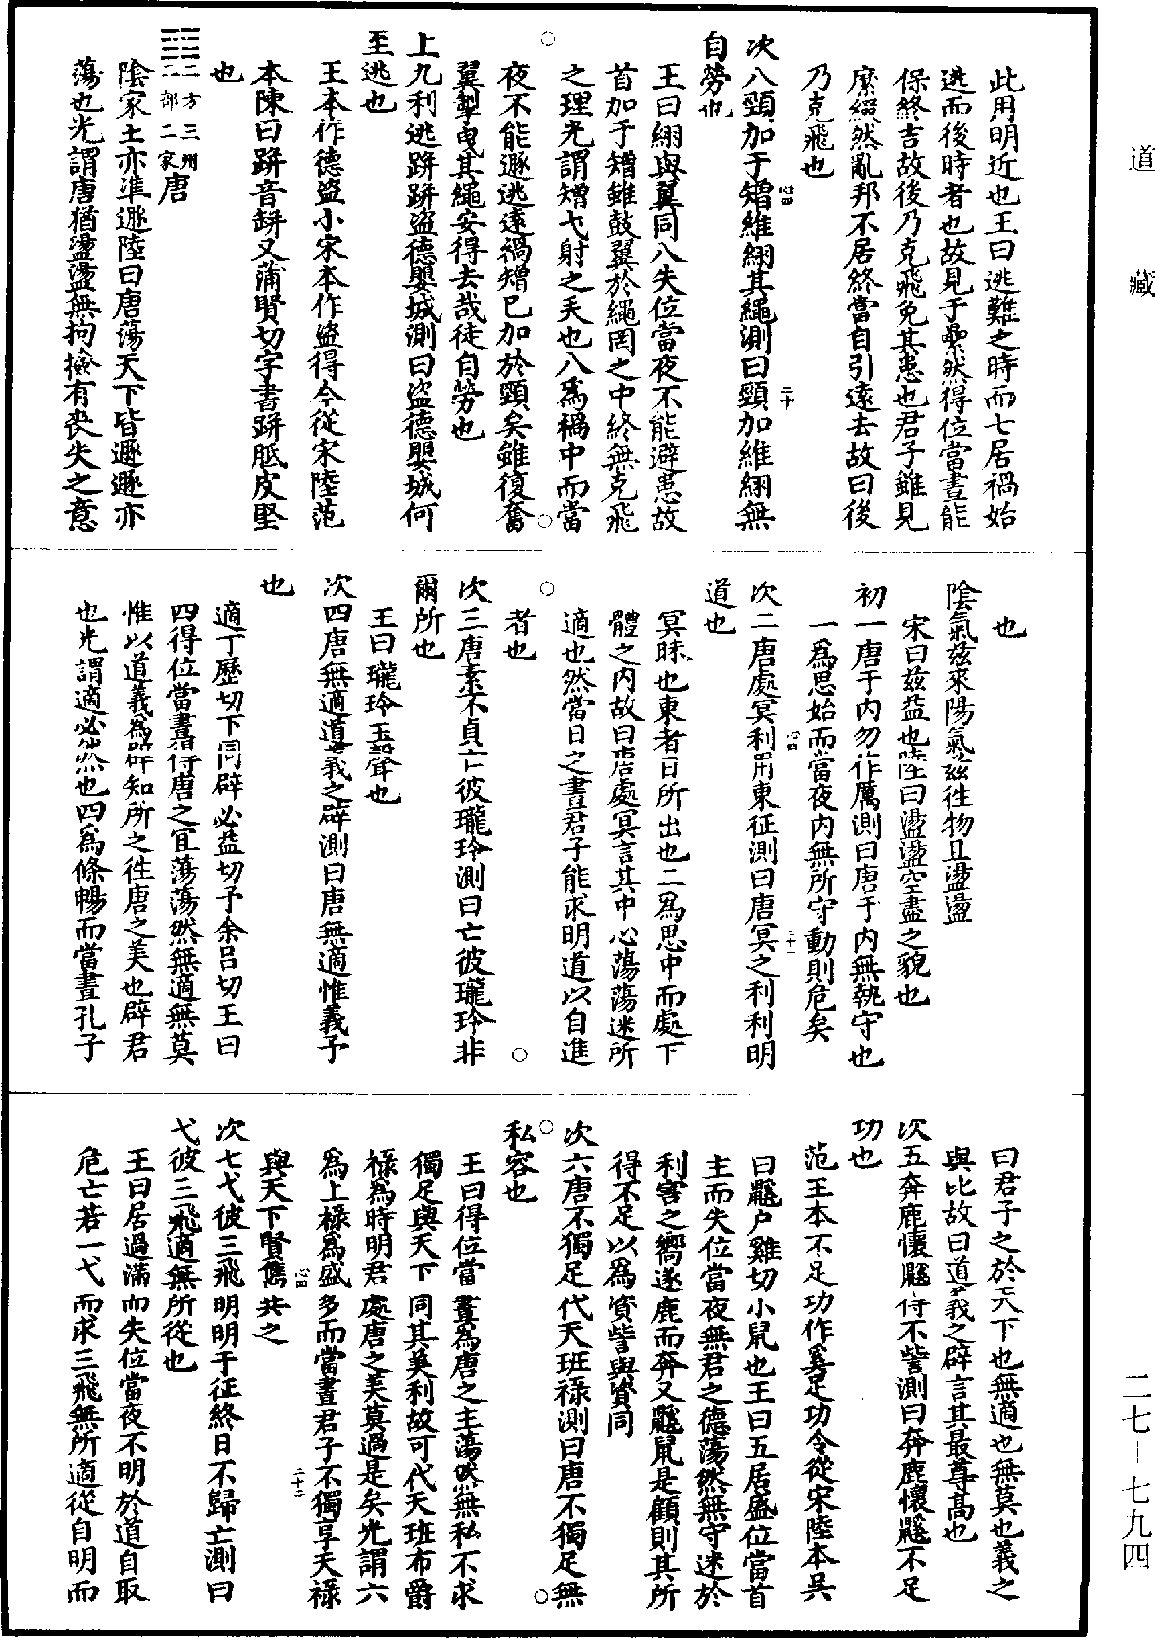 道藏
二七—七九四
此用明近也王曰逃難之時而七居禍始
逃而後時者也故見于纍然得位當晝能
保終吉故後乃克飛免其患也君子雖見
縻綴然亂邦不居終當自引遠去故曰後
乃克飛也
次八頸加于矰維𦆯其繩測曰頸加維𦆯無
自勞也
王曰𦆯與翼同八失位當夜不能避患故
首加于矰雖鼓翼於繩罔之中終無克飛
之理光謂矰弋射之矢也八為禍中而當
夜不能遯逃遠禍矰已加於頸矣雖復奮
翼掣曳其繩安得去哉徒自勞也
上九利逃跰跰盜德嬰城測曰盜德嬰城何
至逃也
王本作德盜小宋本作盜得今從宋陸范
本陳曰跰音缾又蒲賢切字書跰胝皮堅
也
二方三州二部二家唐
陰家土亦準遯陸曰唐蕩天下皆遯遯亦
蕩也光謂唐猶盪盪無拘撿有喪失之意
也
陰氣茲來陽氣茲往物且盪盪
宋曰茲益也陸曰盪盪空盡之貌也
初一唐于内勿作厲測曰唐于内無執守也
一為思始而當夜内無所守動則危矣
次二唐處冥利用東征測曰唐冥之利利明
道也
冥昧也東者日所出也二為思中而處下
體之内故曰唐處冥言其中心蕩蕩迷所
適也然當日之晝君子能求明道以自進
者也
次三唐素不貞亡彼瓏玲測曰亡彼瓏玲非
爾所也
王曰瓏玲玉聲也
次四唐無適道義之辟測曰唐無適惟義予
也
適丁歷切下同辟必益切予余呂切王曰
四得位當晝得唐之宜蕩蕩然無適無莫
惟以道義為辟知所之往唐之美也辟君
也光謂適必然也四為條暢而當晝孔子
曰君子之於天下也無適也無莫也義之
與比故曰道義之辟言其最尊高也
次五奔鹿懷鼷得不訾測曰奔鹿懷鼷不足
功也
范王本不足功作奚足功今從宋陸本吴
曰鼷户雞切小鼠也王曰五居盛位當首
主而失位當夜無君之德蕩然無守迷於
利害之嚮遂鹿而奔又鼷鼠是顧則其所
得不足以為資訾與資同
次六唐不獨足代天班禄測曰唐不獨足無
私容也
王曰得位當晝為唐之主蕩然無私不求
獨足與天下同其美利故可代天班布爵
禄為時明君處唐之美莫過是矣光謂六
為上禄為盛多而當晝君子不獨享天禄
與天下賢儁共之
次七弋彼三飛明明于征終日不歸亡測曰
弋彼三飛適無所從也
王曰居過滿而失位當夜不明於道自取
危亡若一弋而求三飛無所適從自明而